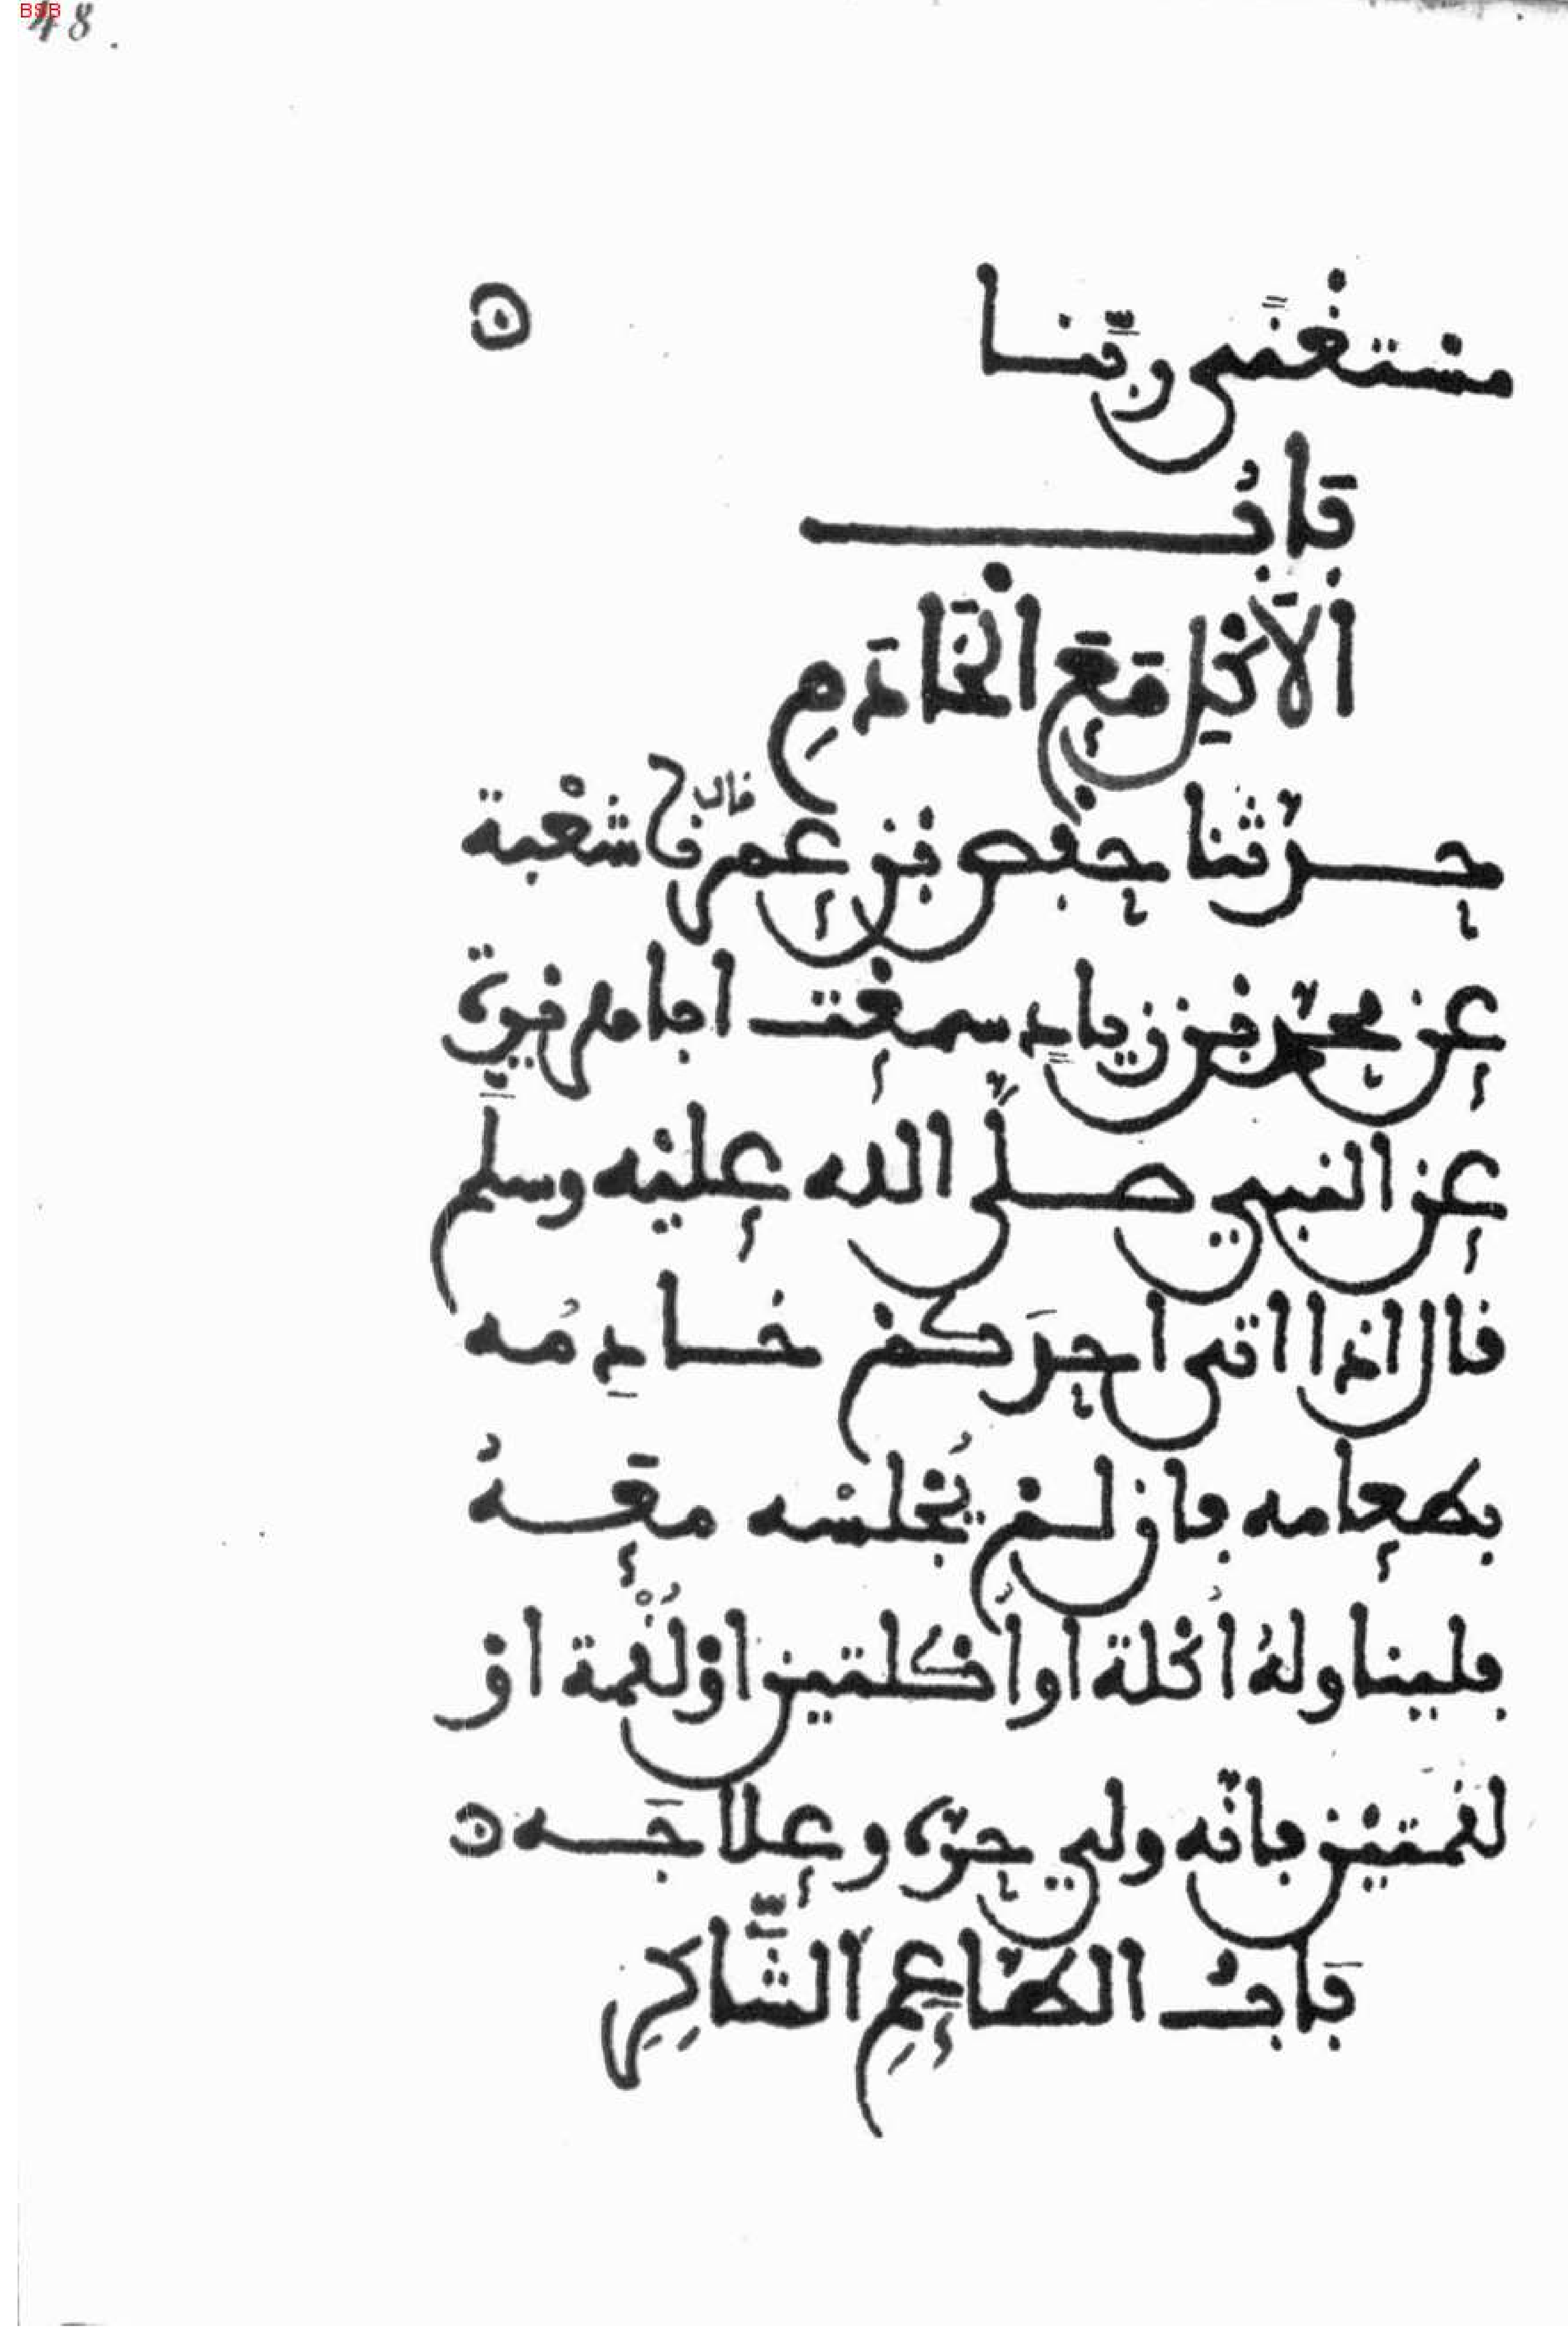 BSB
48.
مستغنًى ربَّنا
بَابُ
الاَكْلِ مَعَ الْخَادَمِ
حدّثنا حفص بن عمر قال نا شعْبة
عن محمّد بن زيادٍ سمعْت ابا هريرة
عن النبي صلّى الله عليْه وسلَّم
قال اذا اتى احدَكم خادِمُه
بطعامه فان لم يُجْلسْه معَهُ
فليناولهُ اُكْلة او اُكْلتين اوْ لُقْمة اوْ
لقمَتيْن فانّه ولي حرّه وعلاجَه
بَابُ الطّاعِمِ الشَّاكِرِ